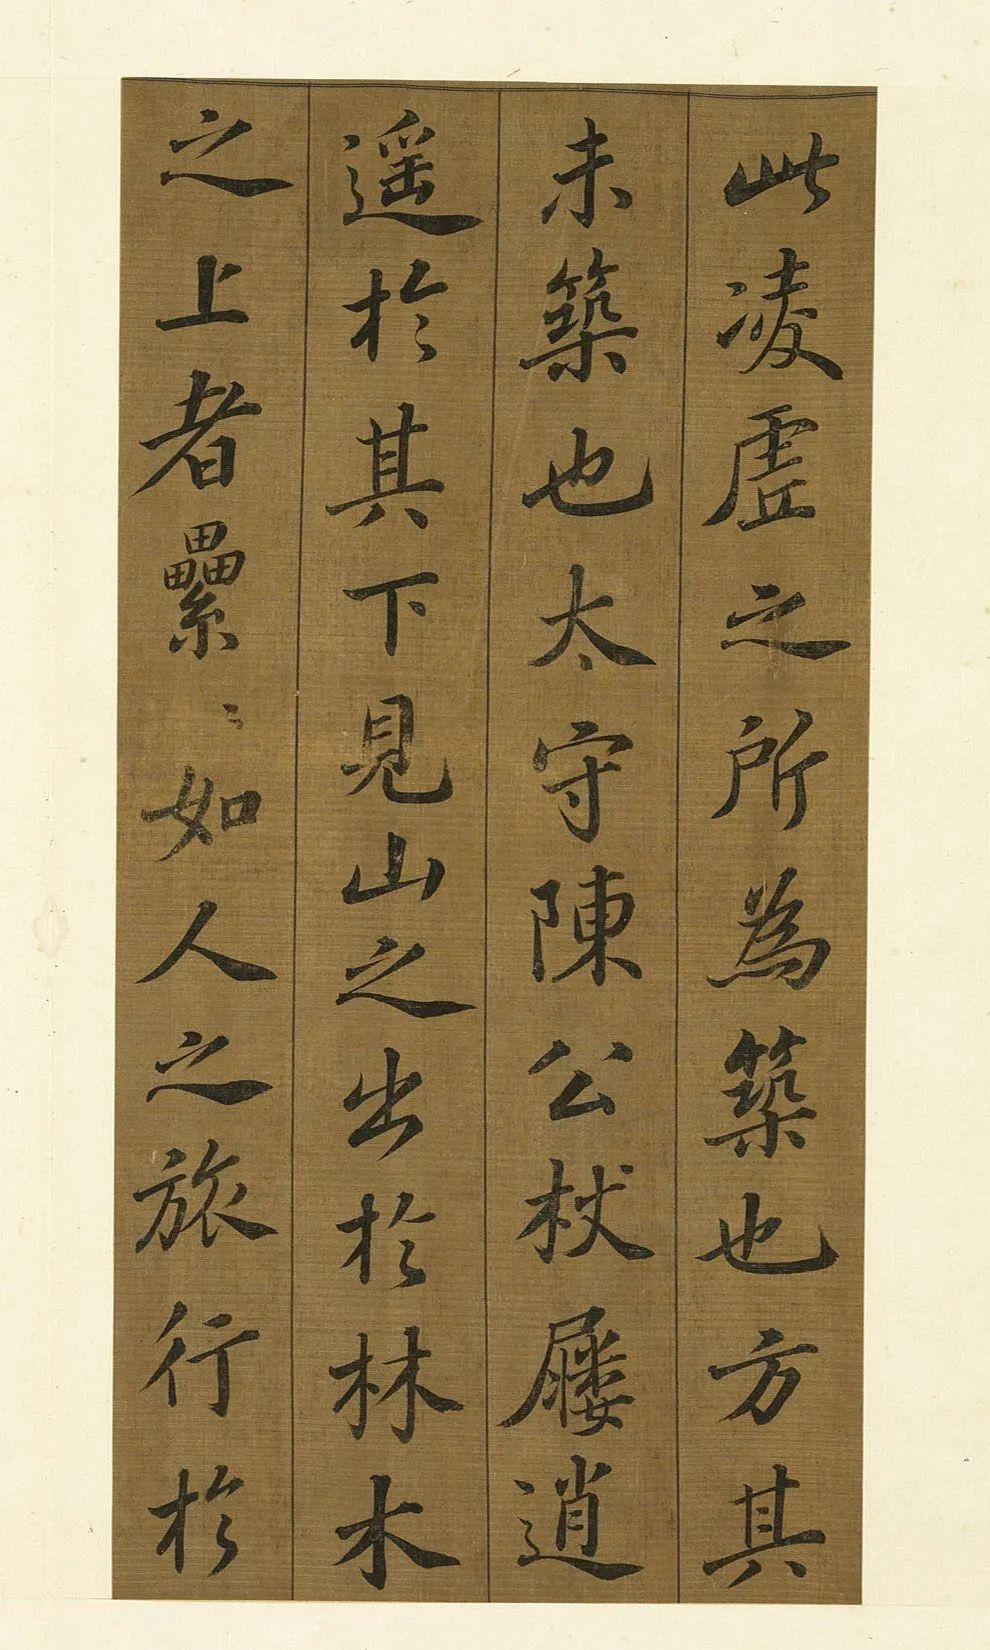 此凌虛之所為築也方其
未築也太守陳公杖屨逍
遥於其下見山之出於林木
之上者纍〻如人之旅行於